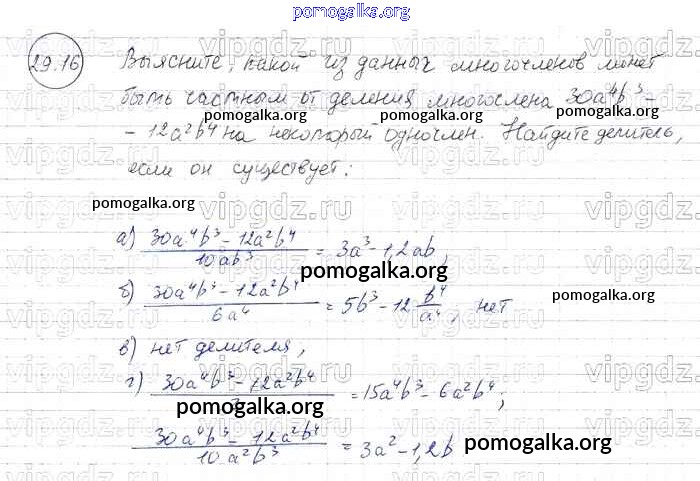 pomogalka.org
29.16 Выясните, какой из данных многочленов может
быть частным от деления многочлена 30a⁴b³ -
- 12a²b⁴ на некоторый одночлен. Найдите делитель,
если он существует:
pomogalka.org pomogalka.org pomogalka.org
pomogalka.org
а) (30a⁴b³ - 12a²b⁴)/(10ab³) = 3a³ - 1,2ab,
pomogalka.org
б) (30a⁴b³ - 12a²b⁴)/(6a⁴) = 5b³ - 12 b⁴/a⁴, нет
pomogalka.org
в) нет делителя,
г) (30a⁴b³ - 12a²b⁴)/ = 15a⁴b³ - 6a²b⁴;
pomogalka.org
(30a⁴b³ - 12a²b⁴)/(10a²b³) = 3a² - 1,2b
pomogalka.org